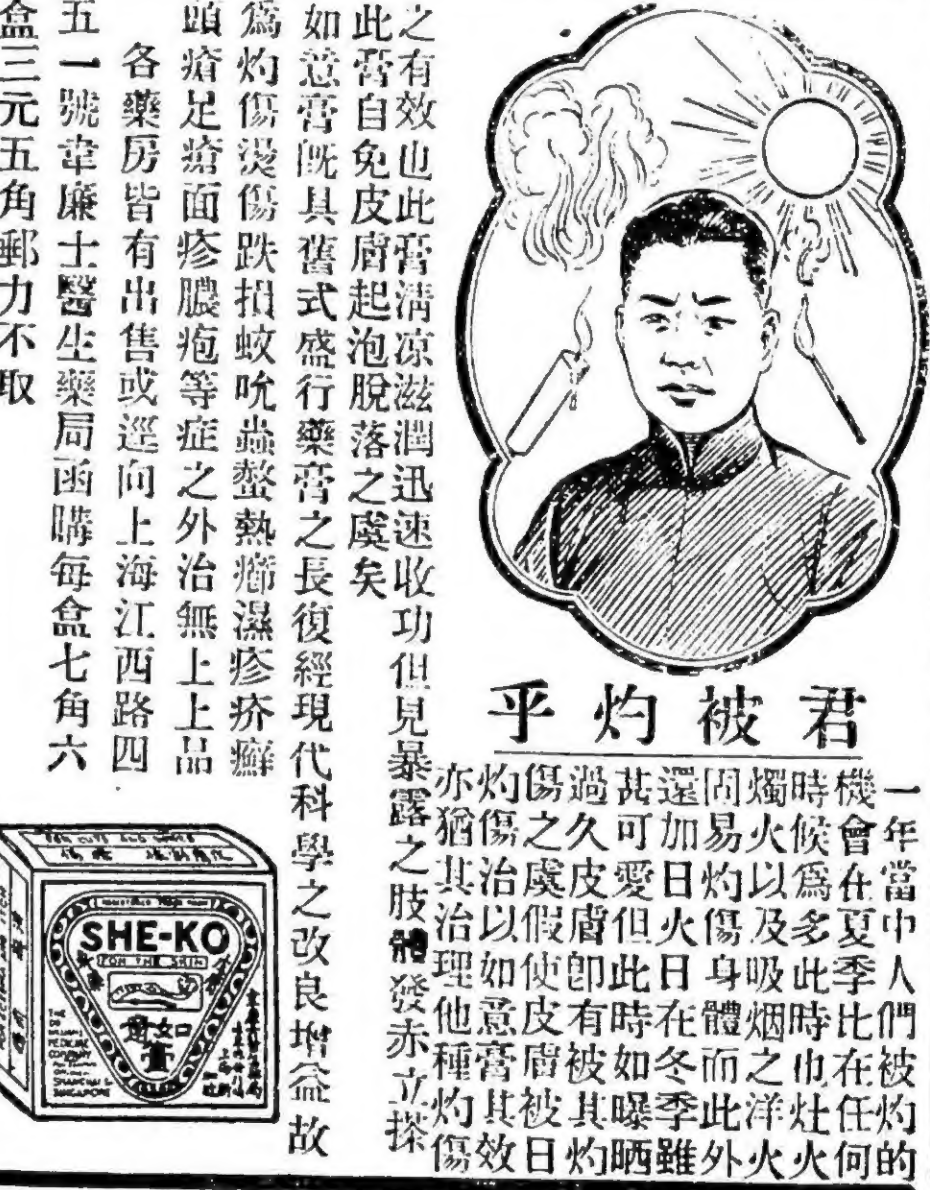 君被灼乎
一年當中人們被灼的
機會在夏季比在任何
時候爲多此時灶火
燭火以及吸烟之洋火
固易灼傷身體而此外
還加日火日在冬季雖
甚可愛但此時如曝晒
過久皮膚卽有被其灼
傷之虞假使皮膚被日
灼傷治以如意膏其效
亦猶其治理他種灼傷
之有效也此膏清凉滋潤迅速收功但見暴露之肢體發赤立搽
此膏自免皮膚起泡脫落之虞矣
如意膏旣具舊式盛行藥膏之長復經現代科學之改良增益故
爲灼傷燙傷跌損蚊吮蟲螫熱癤濕疹疥癬
頭瘡足瘡面疹膿疱等症之外治無上上品
各藥房皆有出售或逕向上海江西路四
五一號韋廉士醫生藥局函購每盒七角六
盒三元五角郵力不取
FOR CUTS AND
SHE-KO
FOR THE SKIN
如意
膏
THE
DR
WILLIAMS
MEDICINE
COMPANY
SHANGHAI &
SINGAPORE